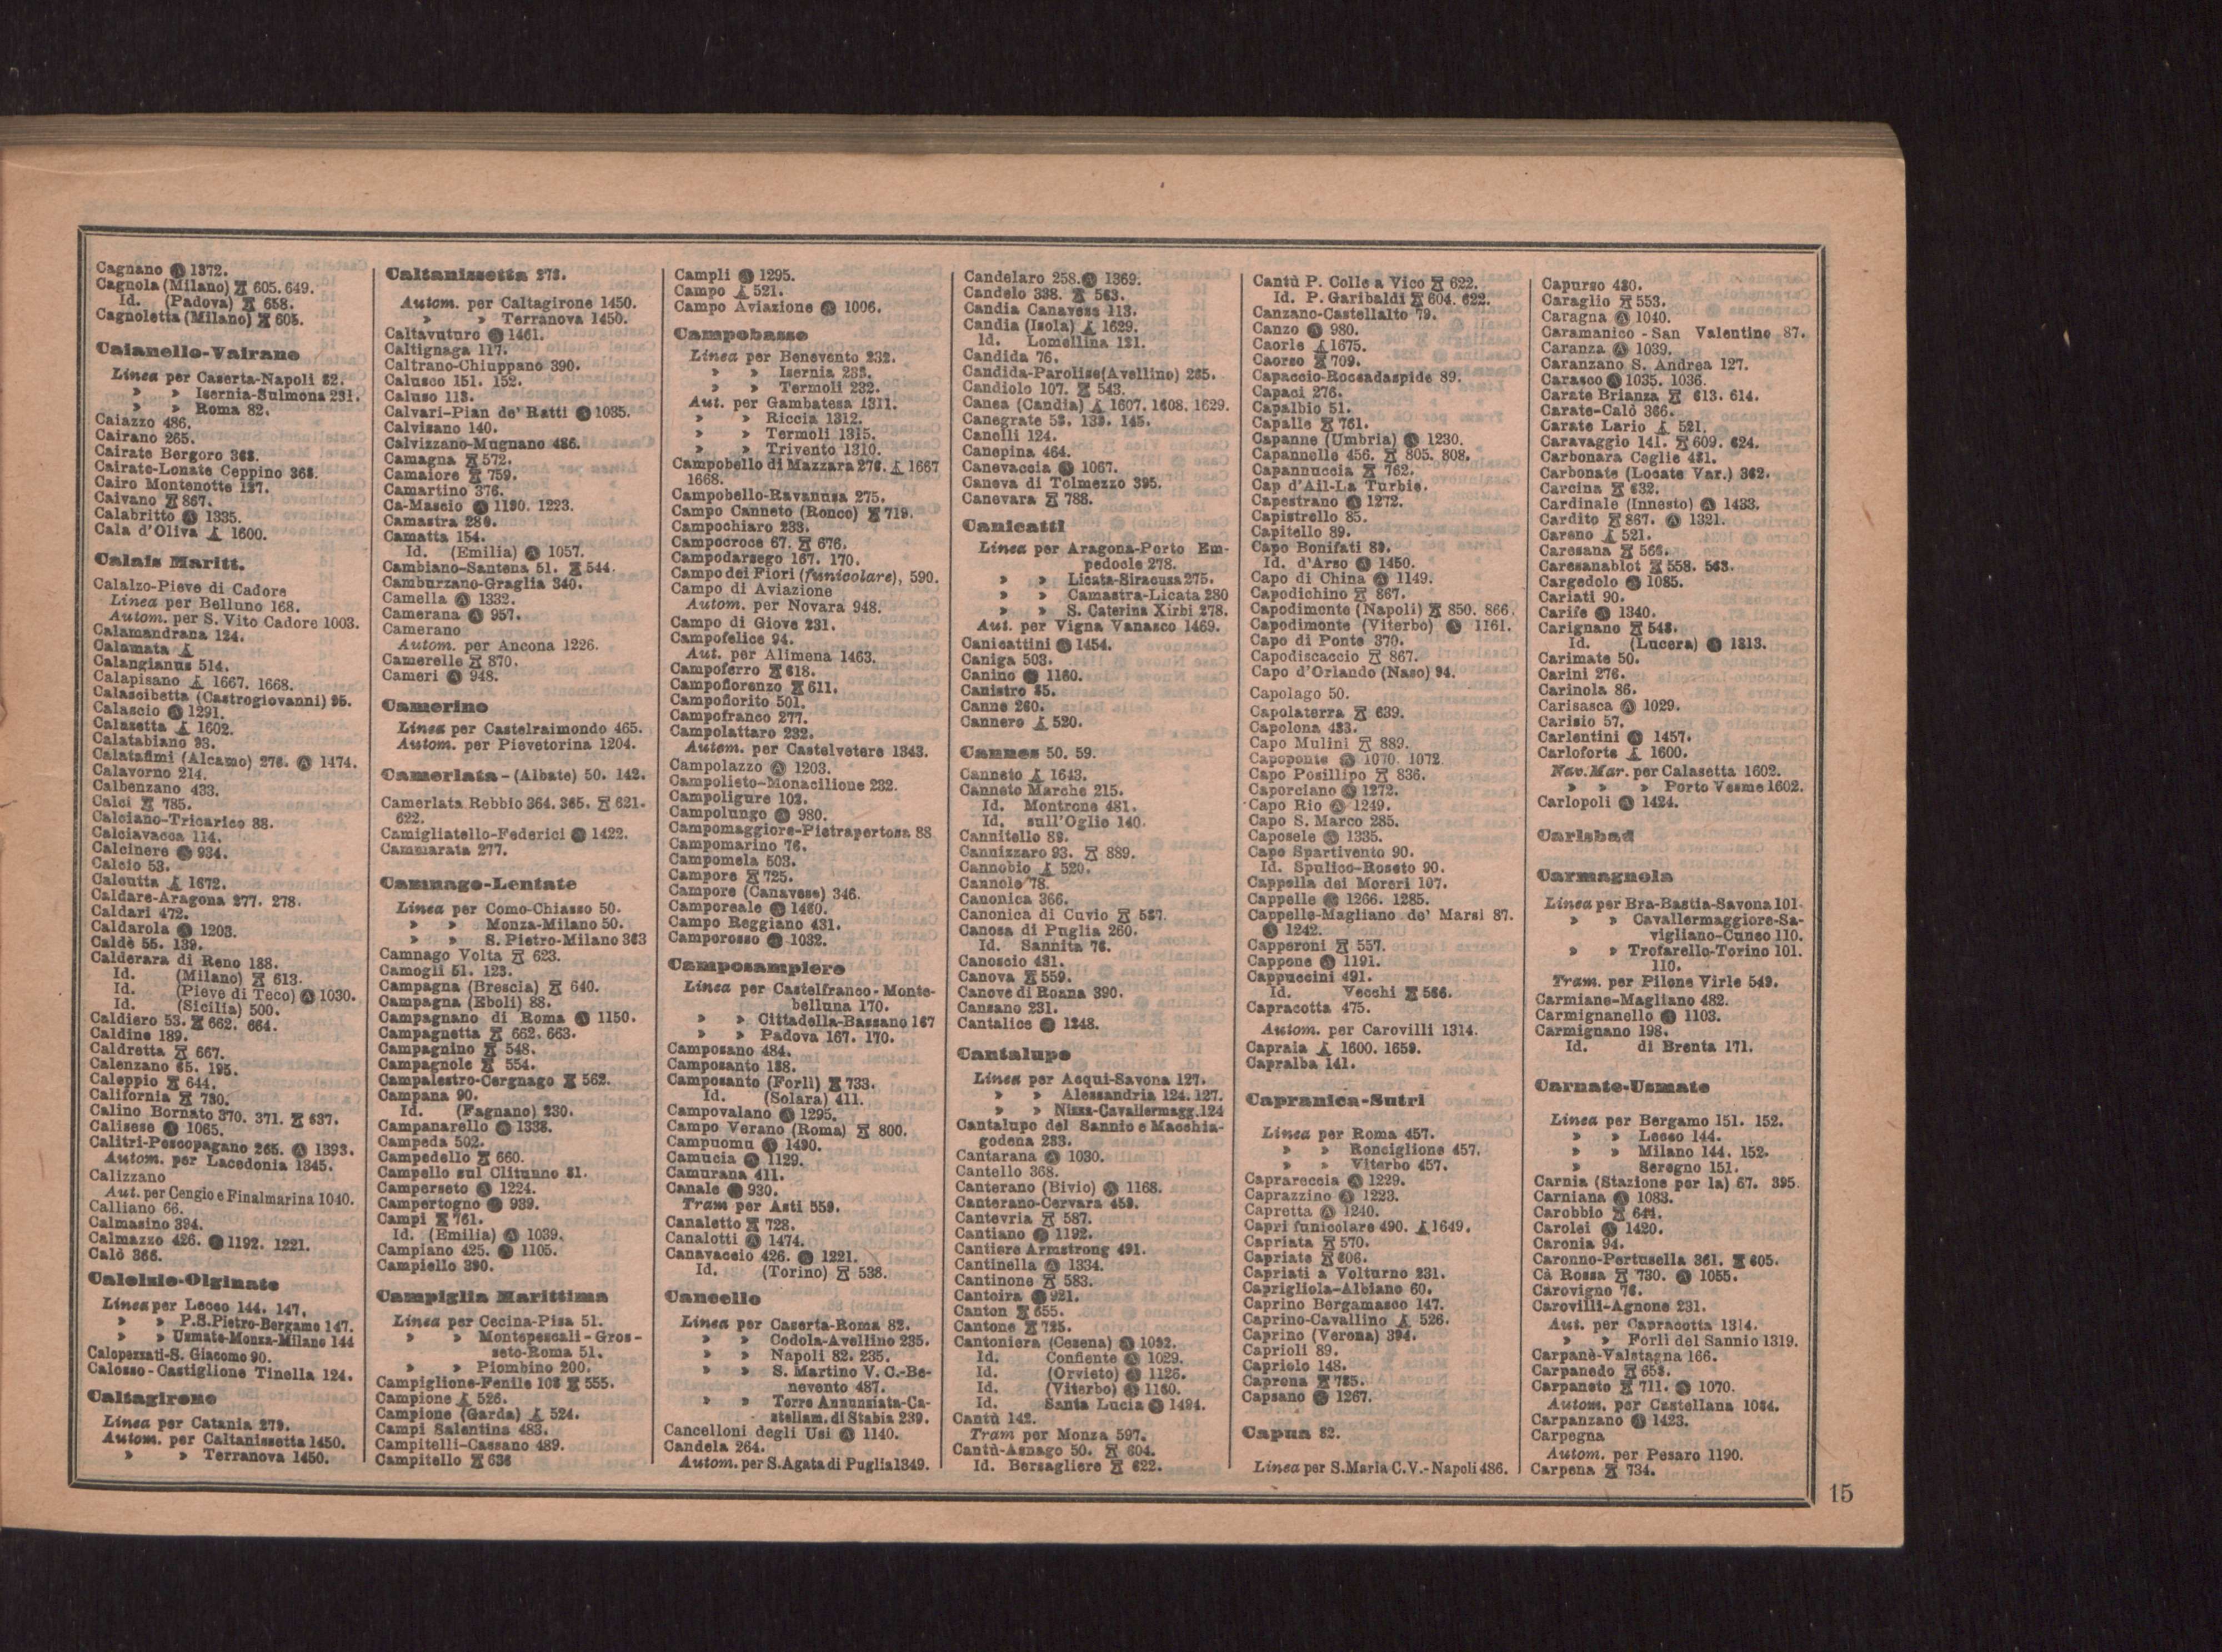 Cagnano Ⓐ 1372.
Cagnola (Milano) 605. 649.
Id. (Padova) 658.
Cagnoletta (Milano) 605.
Caianello-Vairano
Linea per Caserta-Napoli 82.
» » Isernia-Sulmona 231.
» » Roma 82.
Caiazzo 486.
Cairano 265.
Cairate Bergoro 368.
Cairate-Lonate Ceppino 368.
Cairo Montenotte 127.
Caivano 867.
Calabritto Ⓐ 1335.
Cala d'Oliva 1600.
Calais Maritt.
Calalzo-Pieve di Cadore
Linea per Belluno 168.
Autom. per S. Vito Cadore 1003.
Calamandrana 124.
Calamata
Calangianus 514.
Calapisano 1667. 1668.
Calascibetta (Castrogiovanni) 95.
Calascio Ⓐ 1291.
Calasetta 1602.
Calatabiano 93.
Calatafimi (Alcamo) 276. Ⓐ 1474.
Calavorno 214.
Calbenzano 433.
Calci 785.
Calciano-Tricarico 88.
Calciavacca 114.
Calcinere Ⓐ 934.
Calcio 53.
Calcutta 1672.
Caldare-Aragona 277. 278.
Caldari 472.
Caldarola Ⓐ 1203.
Caldè 55. 139.
Calderara di Reno 188.
Id. (Milano) 613.
Id. (Pieve di Teco) Ⓐ 1030.
Id. (Sicilia) 500.
Caldiero 53. 662. 664.
Caldine 189.
Caldretta 667.
Calenzano 65. 195.
Caleppio 644.
California 730.
Calino Bornato 370. 371. 637.
Calisese Ⓐ 1065.
Calitri-Pescopagano 265. Ⓐ 1393.
Autom. per Lacedonia 1345.
Calizzano
Aut. per Cengio e Finalmarina 1040.
Calliano 66.
Calmasino 394.
Calmazzo 426. Ⓐ 1192. 1221.
Calò 366.
Calolzio-Olginate
Linea per Lecco 144. 147.
» » P.S.Pietro-Bergamo 147.
» » Usmate-Monza-Milano 144
Calopezzati-S. Giacomo 90.
Calosso-Castiglione Tinella 124.
Caltagirone
Linea per Catania 279.
Autom. per Caltanissetta 1450.
» » Terranova 1450.
Caltanissetta 278.
Autom. per Caltagirone 1450.
» » Terranova 1450.
Caltavuturo Ⓐ 1461.
Caltignaga 117.
Caltrano-Chiuppano 390.
Calusco 151. 152.
Caluso 113.
Calvari-Pian de' Ratti Ⓐ 1035.
Calvisano 140.
Calvizzano-Mugnano 486.
Camagna 572.
Camaiore 759.
Camartino 376.
Ca-Mascio Ⓐ 1190. 1223.
Camastra 280.
Camatta 154.
Id. (Emilia) Ⓐ 1057.
Cambiano-Santena 51. 544.
Camburzano-Graglia 340.
Camella Ⓐ 1332.
Camerana Ⓐ 957.
Camerano
Autom. per Ancona 1226.
Camerelle 870.
Cameri Ⓐ 948.
Camerino
Linea per Castelraimondo 465.
Autom. per Pievetorina 1204.
Camerlata - (Albate) 50. 142.
Camerlata Rebbio 364. 365. 621.
622.
Camigliatello-Federici Ⓐ 1422.
Cammarata 277.
Camnago-Lentate
Linea per Como-Chiasso 50.
» » Monza-Milano 50.
» » S. Pietro-Milano 363
Camnago Volta 623.
Camogli 51. 123.
Campagna (Brescia) 640.
Campagna (Eboli) 88.
Campagnano di Roma Ⓐ 1150.
Campagnetta 662. 663.
Campagnino 548.
Campagnole 554.
Campalestro-Cergnago 562.
Campana 90.
Id. (Fagnano) 230.
Campanarello Ⓐ 1338.
Campeda 502.
Campedello 660.
Campello sul Clitunno 81.
Camperseto Ⓐ 1224.
Campertogno Ⓐ 939.
Campi 761.
Id. (Emilia) Ⓐ 1039.
Campiano 425. Ⓐ 1105.
Campiello 390.
Campiglia Marittima
Linea per Cecina-Pisa 51.
» » Montepescali-Gros-
seto-Roma 51.
» » Piombino 200.
Campiglione-Fenile 108 555.
Campione 526.
Campione (Garda) 524.
Campi Salentina 483.
Campitelli-Cassano 489.
Campitello 636
Campli Ⓐ 1295.
Campo 521.
Campo Aviazione Ⓐ 1006.
Campobasso
Linea per Benevento 232.
» » Isernia 233.
» » Termoli 232.
Aut. per Gambatesa 1311.
» » Riccia 1312.
» » Termoli 1315.
» » Trivento 1310.
Campobello di Mazzara 276. 1667
1668.
Campobello-Ravanusa 275.
Campo Canneto (Ronco) 719.
Campochiaro 233.
Campocroce 67. 676.
Campodarsego 167. 170.
Campo dei Fiori (funicolare), 590.
Campo di Aviazione
Autom. per Novara 948.
Campo di Giove 231.
Campofelice 94.
Aut. per Alimena 1463.
Campoferro 618.
Campofiorenzo 611.
Campofiorito 501.
Campofranco 277.
Campolattaro 232.
Autom. per Castelvetere 1343.
Campolazzo Ⓐ 1203.
Campolieto-Monacilione 232.
Campoligure 102.
Campolungo Ⓐ 980.
Campomaggiore-Pietrapertosa 88
Campomarino 76.
Campomela 503.
Campore 725.
Campore (Canavese) 346.
Camporeale Ⓐ 1460.
Campo Reggiano 431.
Camporosso Ⓐ 1032.
Camposampiero
Linea per Castelfranco-Monte-
belluna 170.
» » Cittadella-Bassano 167
» » Padova 167. 170.
Camposano 484.
Camposanto 188.
Camposanto (Forlì) 733.
Id. (Solara) 411.
Campovalano Ⓐ 1295.
Campo Verano (Roma) 800.
Campuomu Ⓐ 1490.
Camucia Ⓐ 1129.
Camurana 411.
Canale Ⓐ 930.
Tram per Asti 559.
Canaletto 728.
Canalotti Ⓐ 1474.
Canavaccio 426. Ⓐ 1221.
Id. (Torino) 538.
Cancello
Linea per Caserta-Roma 82.
» » Codola-Avellino 235.
» » Napoli 82. 235.
» » S. Martino V. C.-Be-
nevento 487.
» » Torre Annunziata-Ca-
stellam. di Stabia 239.
Cancelloni degli Usi Ⓐ 1140.
Candela 264.
Autom. per S.Agata di Puglia 1349.
Candelaro 258. Ⓐ 1369.
Candelo 338. 563.
Candia Canavese 113.
Candia (Isola) 1629.
Id. Lomellina 121.
Candida 76.
Candida-Parolise (Avellino) 265.
Candiolo 107. 543.
Canea (Candia) 1607. 1608. 1629.
Canegrate 53. 139. 145.
Canelli 124.
Canepina 464.
Canevaccia Ⓐ 1067.
Caneva di Tolmezzo 395.
Canevara 788.
Canicattì
Linea per Aragona-Porto Em-
pedocle 278.
» » Licata-Siracusa 275.
» » Camastra-Licata 280
» » S. Caterina Xirbi 278.
Aut. per Vigna Vanasco 1469.
Canicattini Ⓐ 1454.
Caniga 503.
Canino Ⓐ 1160.
Canistro 85.
Canne 260.
Cannero 520.
Cannes 50. 59.
Canneto 1643.
Canneto Marche 215.
Id. Montrone 481.
Id. sull'Oglio 140.
Cannitello 89.
Cannizzaro 93. 889.
Cannobio 520.
Cannole 78.
Canonica 366.
Canonica di Cuvio 587.
Canosa di Puglia 260.
Id. Sannita 76.
Canoscio 431.
Canova 559.
Canove di Roana 390.
Cansano 231.
Cantalice Ⓐ 1248.
Cantalupo
Linea per Acqui-Savona 127.
» » Alessandria 124. 127.
» » Nizza-Cavallermagg. 124
Cantalupo del Sannio e Macchia-
godena 233.
Cantarana Ⓐ 1030.
Cantello 368.
Canterano (Bivio) Ⓐ 1168.
Canterano-Cervara 459.
Cantevria 587.
Cantiano Ⓐ 1192.
Cantiere Armstrong 491.
Cantinella Ⓐ 1334.
Cantinone 583.
Cantoira Ⓐ 921.
Canton 655.
Cantone 725.
Cantoniera (Cesena) Ⓐ 1092.
Id. Confiente Ⓐ 1029.
Id. (Orvieto) Ⓐ 1126.
Id. (Viterbo) Ⓐ 1160.
Id. Santa Lucia Ⓐ 1494.
Cantù 142.
Tram per Monza 597.
Cantù-Asnago 50. 604.
Id. Bersagliere 622.
Cantù P. Colle a Vico 622.
Id. P. Garibaldi 604. 622.
Canzano-Castellalto 79.
Canzo Ⓐ 980.
Caorle 1675.
Caorso 709.
Capaccio-Roccadaspide 89.
Capaci 276.
Capalbio 51.
Capalle 761.
Capanne (Umbria) Ⓐ 1230.
Capannelle 456. 805. 808.
Capannuccia 762.
Cap d'Ail-La Turbie.
Capestrano Ⓐ 1272.
Capistrello 85.
Capitello 89.
Capo Bonifati 89.
Id. d'Arso Ⓐ 1450.
Capo di China Ⓐ 1149.
Capodichino 867.
Capodimonte (Napoli) 850. 866.
Capodimonte (Viterbo) Ⓐ 1161.
Capo di Ponte 370.
Capodiscaccio 867.
Capo d'Orlando (Naso) 94.
Capolago 50.
Capolaterra 639.
Capolona 433.
Capo Mulini 889.
Capoponte Ⓐ 1070. 1072.
Capo Posillipo 836.
Caporciano Ⓐ 1272.
Capo Rio Ⓐ 1249.
Capo S. Marco 285.
Caposele Ⓐ 1335.
Capo Spartivento 90.
Id. Spulico-Roseto 90.
Cappella dei Moreri 107.
Cappelle Ⓐ 1266. 1285.
Cappelle-Magliano de' Marsi 87.
Ⓐ 1242.
Capperoni 557.
Cappone Ⓐ 1191.
Cappuccini 491.
Id. Vecchi 566.
Capracotta 475.
Autom. per Carovilli 1314.
Capraia 1600. 1659.
Capralba 141.
Capranica-Sutri
Linea per Roma 457.
» » Ronciglione 457.
» » Viterbo 457.
Caprareccia Ⓐ 1229.
Caprazzino Ⓐ 1223.
Capretta Ⓐ 1240.
Capri funicolare 490. 1649.
Capriata 570.
Capriate 606.
Capriati a Volturno 231.
Caprigliola-Albiano 60.
Caprino Bergamasco 147.
Caprino-Cavallino 526.
Caprino (Verona) 394.
Caprioli 89.
Capriolo 148.
Caprona 785.
Capsano Ⓐ 1267.
Capua 82.
Linea per S.Maria C.V.-Napoli 486.
Capurso 480.
Caraglio 553.
Caragna Ⓐ 1040.
Caramanico - San Valentino 87.
Caranza Ⓐ 1039.
Caranzano S. Andrea 127.
Carasco Ⓐ 1035. 1036.
Carate Brianza 613. 614.
Carate-Calò 366.
Carate Lario 521.
Caravaggio 141. 609. 624.
Carbonara Ceglie 481.
Carbonate (Locate Var.) 362.
Carcina 632.
Cardinale (Innesto) Ⓐ 1433.
Cardito 867. Ⓐ 1321.
Careno 521.
Caresana 566.
Caresanablot 558. 563.
Cargedolo Ⓐ 1085.
Cariati 90.
Carife Ⓐ 1340.
Carignano 548.
Id. (Lucera) Ⓐ 1313.
Carimate 50.
Carini 276.
Carinola 86.
Carisasca Ⓐ 1029.
Carisio 57.
Carlentini Ⓐ 1457.
Carloforte 1600.
Nav.Mar. per Calasetta 1602.
» » » Porto Vesme 1602.
Carlopoli Ⓐ 1424.
Carlsbad
Carmagnola
Linea per Bra-Bastia-Savona 101
» » Cavallermaggiore-Sa-
vigliano-Cuneo 110.
» » Trofarello-Torino 101.
110.
Tram. per Pilone Virle 549.
Carmiano-Magliano 482.
Carmignanello Ⓐ 1103.
Carmignano 198.
Id. di Brenta 171.
Carnate-Usmate
Linea per Bergamo 151. 152.
» » Lecco 144.
» » Milano 144. 152.
» Seregno 151.
Carnia (Stazione per la) 67. 395.
Carniana Ⓐ 1083.
Carobbio 644.
Carolei Ⓐ 1420.
Caronia 94.
Caronno-Pertusella 361. 605.
Cà Rossa 730. Ⓐ 1055.
Carovigno 76.
Carovilli-Agnone 231.
Aut. per Capracotta 1314.
» » Forlì del Sannio 1319.
Carpanè-Valstagna 166.
Carpanedo 658.
Carpaneto 711. Ⓐ 1070.
Autom. per Castellana 1064.
Carpanzano Ⓐ 1423.
Carpegna
Autom. per Pesaro 1190.
Carpena 734.
15